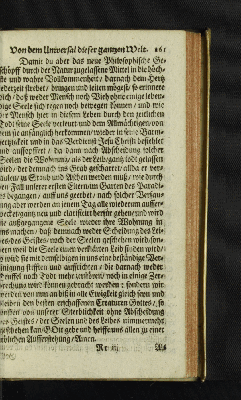 Von dem Universal dieser gantzen Welt. 161
Damit du aber das neue Philosophische Ge-
schöpff durch der Natur zugelassene Mittel in die höch-
ste und wahre Vollkommenheit, darnach dein Hertz
jederzeit strebet, bringen und leiten mögest, so erinnere
dich, daß weder Mensch noch Vieh ohne einige leben-
dige Seele sich regen noch bewegen können, und wie
der Mensch hier in diesem Leben durch den zeitlichen
Todt seine Seele verleurt und dem Allmächtigen, von
dem sie anfänglich herkommen, wieder in seine Barm-
hertzigkeit und in das Verdienst Jesu Christi
aufgeopffert, da dann nach Abscheidung solcher
Seelen die Wohnung, als der Leib, gantz todt gelassen
wird, der demnach ins Grab gescharret, allda er ver-
faulen, zu Staub und Aschen werden muß, wie durch
den Fall unserer ersten Elteren im Garten des Paradi-
ses begangen, auff uns geerbet, nach solcher Versam-
lung aber werden an jenem Tag alle wiederum auffer-
wecket
sie außgegangene Seele wieder ihre Wohnung in
uns machen, daß demnach weder Scheidung des Lei-
bes, des Geistes, noch der Seelen geschehen wird, son-
dern weil die Seele einen verklärten Leib finden wird,
so wird sie mit demselbigen in uns eine beständige Ver-
einigung stifften und auffrichten, die darnach weder
Teuffel noch Todt mehr zerstöhren, noch in einige Zer-
brechung wird können gebracht werden, sondern wir
werden von nun an biß in alle Ewigkeit gleich seyn und
bleiben den besten erschaffenen Creaturen Gottes, so
sonsten von unser Sterblichkeit ohne Abscheidung
des Geistes, der Seelen und des Leibes nimmermehr
geschehen kan, GOtt gebe und helffe uns allen zu einer
frölichen Aufferstehung, Amen.
Als